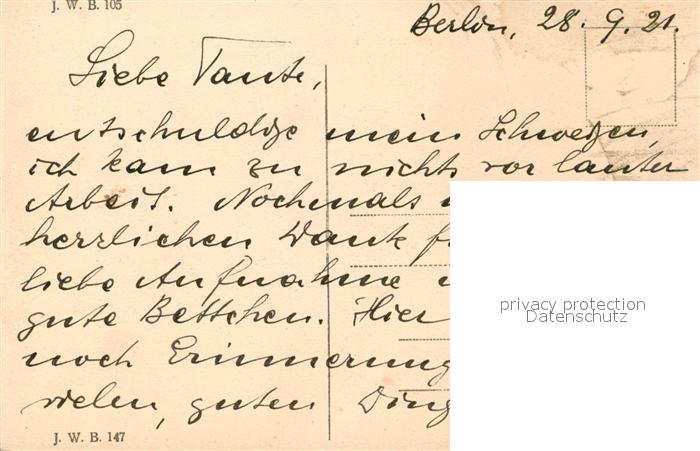 J. W. B. 105
Berlin, 28. 9. 21.
Liebe Tante,
entschuldige mein Schweigen,
ich kam zu nichts vor lauter
Arbeit. Nochmals
herzlichen Dank
liebe Aufnahme
gute Bettchen. Hier
noch Erinnerung
vielen, guten Ding
privacy protection
Datenschutz
J. W. B. 147